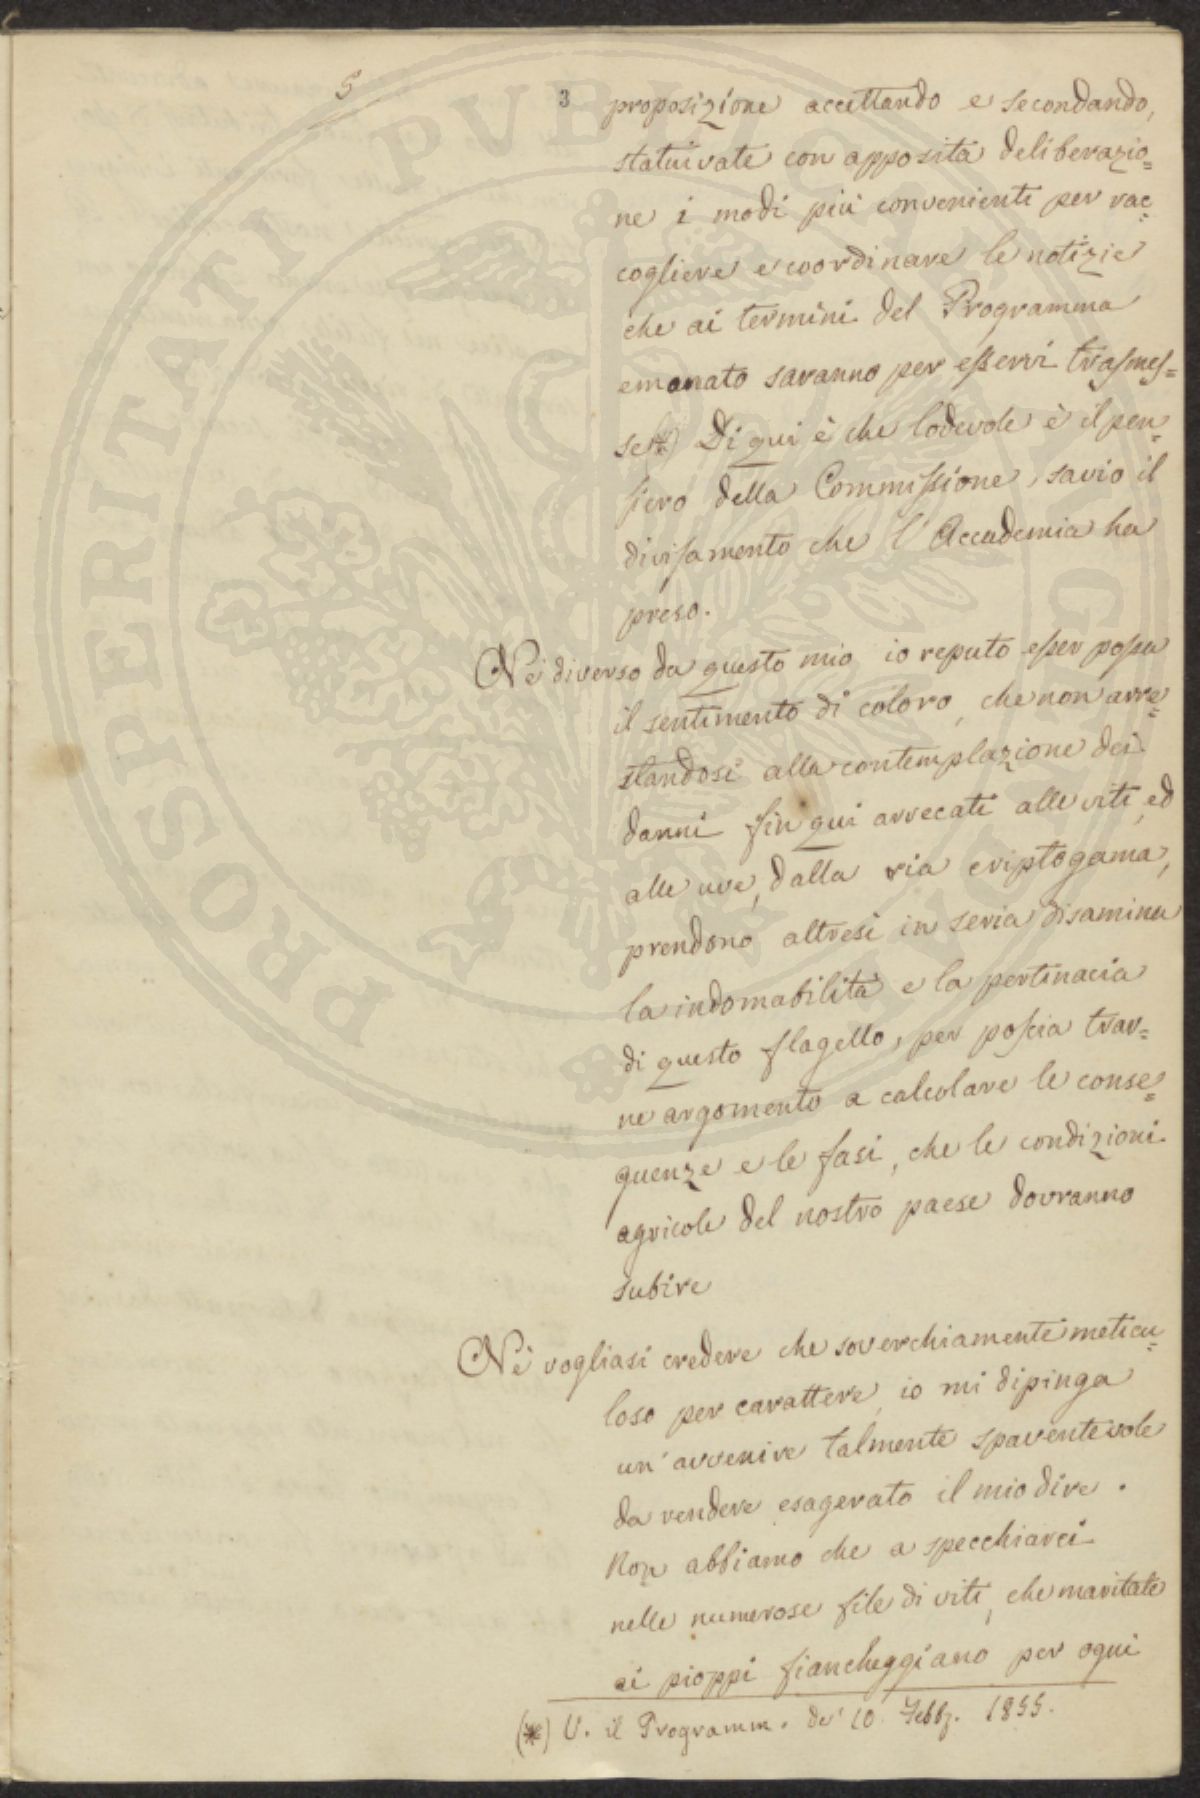 5
3
proposizione accettando e secondando,
statuivate con apposita deliberazio=
ne i modi più convenienti per rac=
cogliere e coordinare le notizie
che ai termini del Programma
emanato saranno per eſservi traſmeſ=
se(*) Di qui è che lodevole è il pen=
ſiero della Commiſsione, savio il
diviſamento che l'Accademia ha
preso.
Nè diverso da questo mio io reputo eſser poſsa
il sentimento di coloro, che non arre=
standosi alla contemplazione dei
danni fin qui arrecati alle viti, ed
alle uve, dalla ria criptogama,
prendono altresì in seria disamina
la indomabilità e la pertinacia
di questo flagello, per poſcia trar=
ne argomento a calcolare le conse=
guenze e le fasi, che le condizioni
agricole del nostro paese dovranno
subire
Nè vogliasi credere che soverchiamente meticu=
loso per carattere, io mi dipinga
un'avvenire talmente spaventevole
da rendere esagerato il mio dire.
Non abbiamo che a specchiarci
nelle numerose file di viti, che maritate
ai pioppi fiancheggiano per ogni
(*) V. il Programm. de' 10 Febb. 1855.
PROSPERITATI PVBLICAE